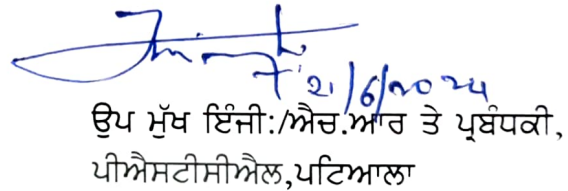 21/6/2024
ਉਪ ਮੁੱਖ ਇੰਜੀ:/ਐਚ.ਆਰ ਤੇ ਪ੍ਰਬੰਧਕੀ,
ਪੀਐਸਟੀਸੀਐਲ,ਪਟਿਆਲਾ